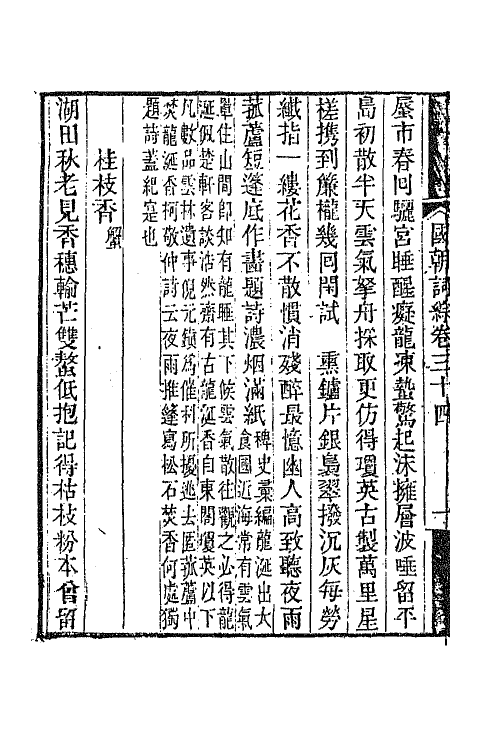 國朝詞綜卷三十四
一
蜃市春回驪宮睡醒癡龍凍蟄驚起沫擁層波唾留平
島初散半天雲氣拏舟採取更仿得瓊英古製萬里星
槎携到簾櫳幾回閒試　熏鑪片銀曷翠撥沉灰每勞
纖指一縷花香不散慣消殘醉最憶幽人高致聽夜雨
菰蘆短篷底作畫題詩濃烟滿紙稗史彙編龍涎出大
食國近海常有雲氣
罩住山間卽知有龍睡其下候雲氣散往觀之必得龍
涎佩楚軒客談浩然齋有古龍涎香自東閣瓊英以下
凡數品雲林遺事倪元鎮爲催科所擾逃去匿菰蘆中
焚龍涎香柯敬仲詩云夜雨推篷寫松石焚香何處獨
題詩蓋紀寔也
桂枝香蟹
湖田秋老見香穗輸芒雙螯低抱記得枯枝粉本曾留